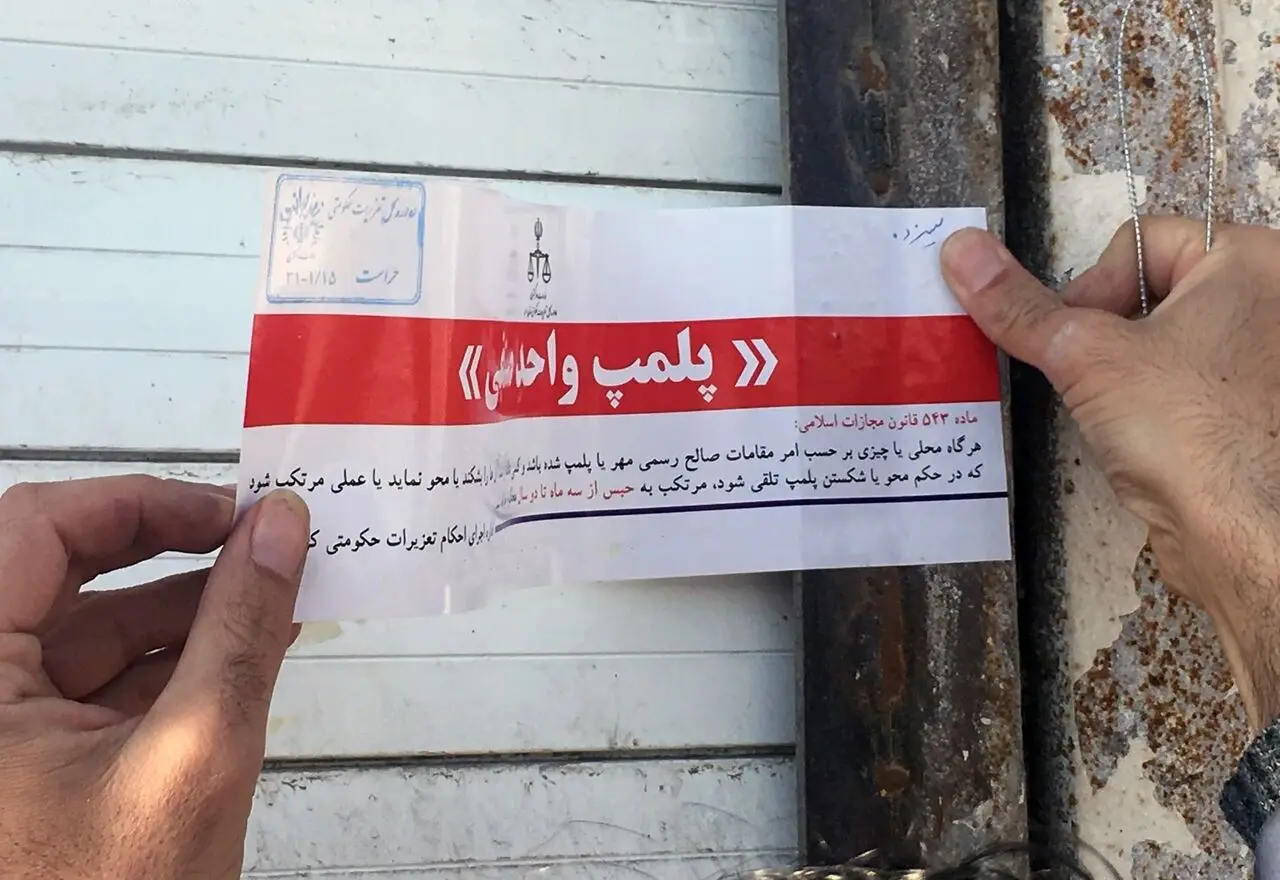 اداره کل تعزیرات حکومتی
حراست ۳۱-۱/۱۵
سیزده
« پلمپ واحد صنفی »
ماده ۵۴۳ قانون مجازات اسلامی:
هرگاه محلی یا چیزی بر حسب امر مقامات صالح رسمی مهر یا پلمپ شده باشد و را بشکند یا محو نماید یا عملی مرتکب شود
که در حکم محو یا شکستن پلمپ تلقی شود، مرتکب به حبس از سه ماه تا دو سال
اجرای احکام تعزیرات حکومتی